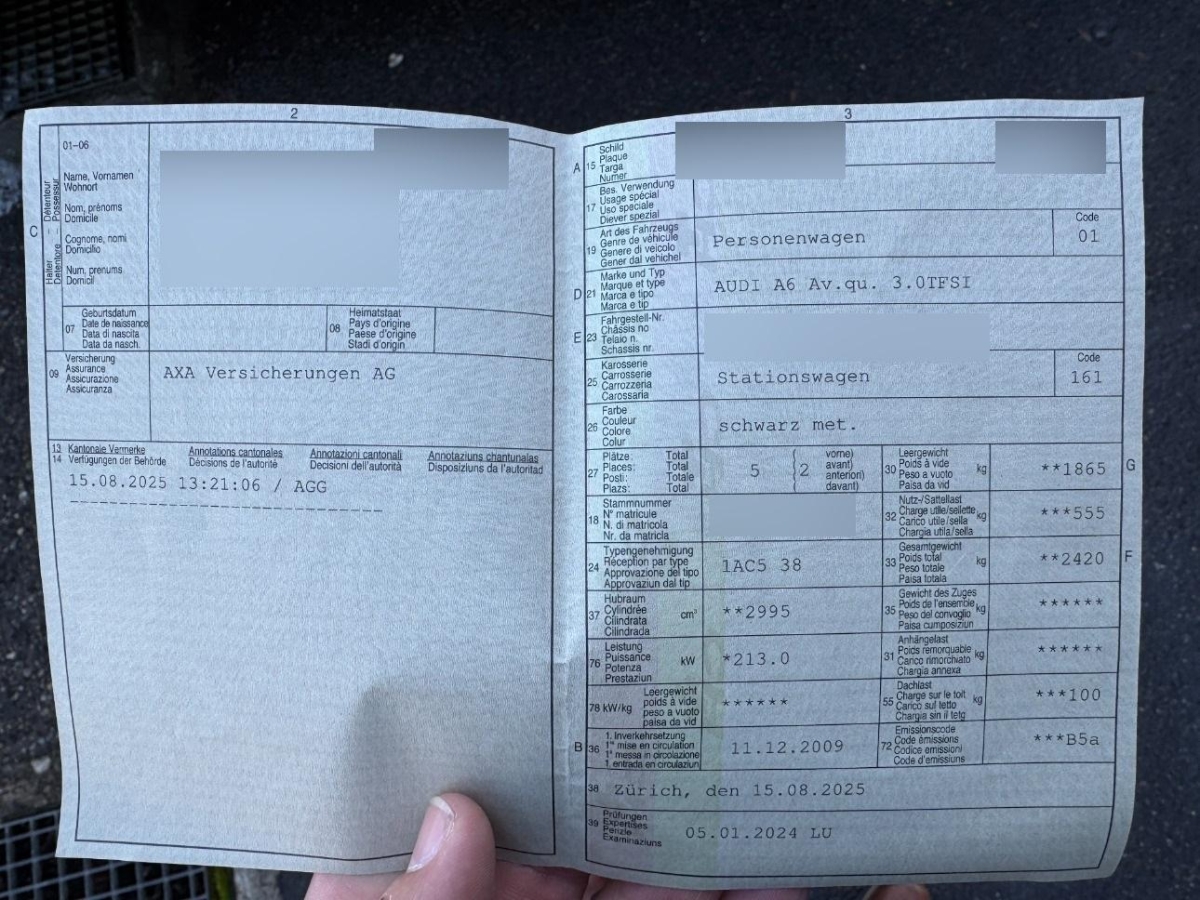 2
01-06
Name, Vornamen
Wohnort
Nom, prénoms
Domicile
Cognome, nomi
Domicilio
Num, prenums
Domicil
C
Halter – Détenteur
Detentore – Possessur
07
Geburtsdatum
Date de naissance
Data di nascita
Data da nasch.
08
Heimatstaat
Pays d'origine
Paese d'origine
Stadi d'origin
09
Versicherung
Assurance
Assicurazione
Assicuranza
AXA Versicherungen AG
13 Kantonale Vermerke Annotations cantonales Annotazioni cantonali Annotaziuns chantunalas
14 Verfügungen der Behörde Décisions de l'autorité Decisioni dell'autorità Disposiziuns da l'autoritad
15.08.2025 13:21:06 / AGG
3
A 15
Schild
Plaque
Targa
Numer
17
Bes. Verwendung
Usage spécial
Uso speciale
Diever spezial
19
Art des Fahrzeugs
Genre de véhicule
Genere di veicolo
Gener dal vehichel
Personenwagen
Code
01
D 21
Marke und Typ
Marque et type
Marca e tipo
Marca e tip
AUDI A6 Av.qu. 3.0TFSI
E 23
Fahrgestell-Nr.
Châssis no
Telaio n.
Schassis nr.
25
Karosserie
Carrosserie
Carrozzeria
Carossaria
Stationswagen
Code
161
26
Farbe
Couleur
Colore
Colur
schwarz met.
27
Plätze: Total
Places: Total
Posti: Totale
Plazs: Total
5 {2
vorne)
avant)
anteriori)
davant)
30
Leergewicht
Poids à vide
Peso a vuoto
Paisa da vid
kg
**1865
G
18
Stammnummer
N° matricule
N. di matricola
Nr. da matricla
32
Nutz-/Sattellast
Charge utile/sellette
Carico utile/sella
Chargia utila/sella
kg
***555
24
Typengenehmigung
Réception par type
Approvazione del tipo
Approvaziun dal tip
1AC5 38
33
Gesamtgewicht
Poids total
Peso totale
Paisa totala
kg
**2420
F
37
Hubraum
Cylindrée
Cilindrata
Cilindrada
cm³
**2995
35
Gewicht des Zuges
Poids de l'ensemble
Peso del convoglio
Paisa cumposiziun
kg
******
76
Leistung
Puissance
Potenza
Prestaziun
kW
*213.0
31
Anhängelast
Poids remorquable
Carico rimorchiato
Chargia annexa
kg
******
78 kW/kg
Leergewicht
poids à vide
peso a vuoto
paisa da vid
******
55
Dachlast
Charge sur le toit
Carico sul tetto
Chargia sin il tetg
kg
***100
B 36
1. Inverkehrsetzung
1re mise en circulation
1a messa in circolazione
1. entrada en circulaziun
11.12.2009
72
Emissionscode
Code émissions
Codice emissioni
Code d'emissiuns
***B5a
38 Zürich, den 15.08.2025
39
Prüfungen
Expertises
Perizie
Examinaziuns
05.01.2024 LU